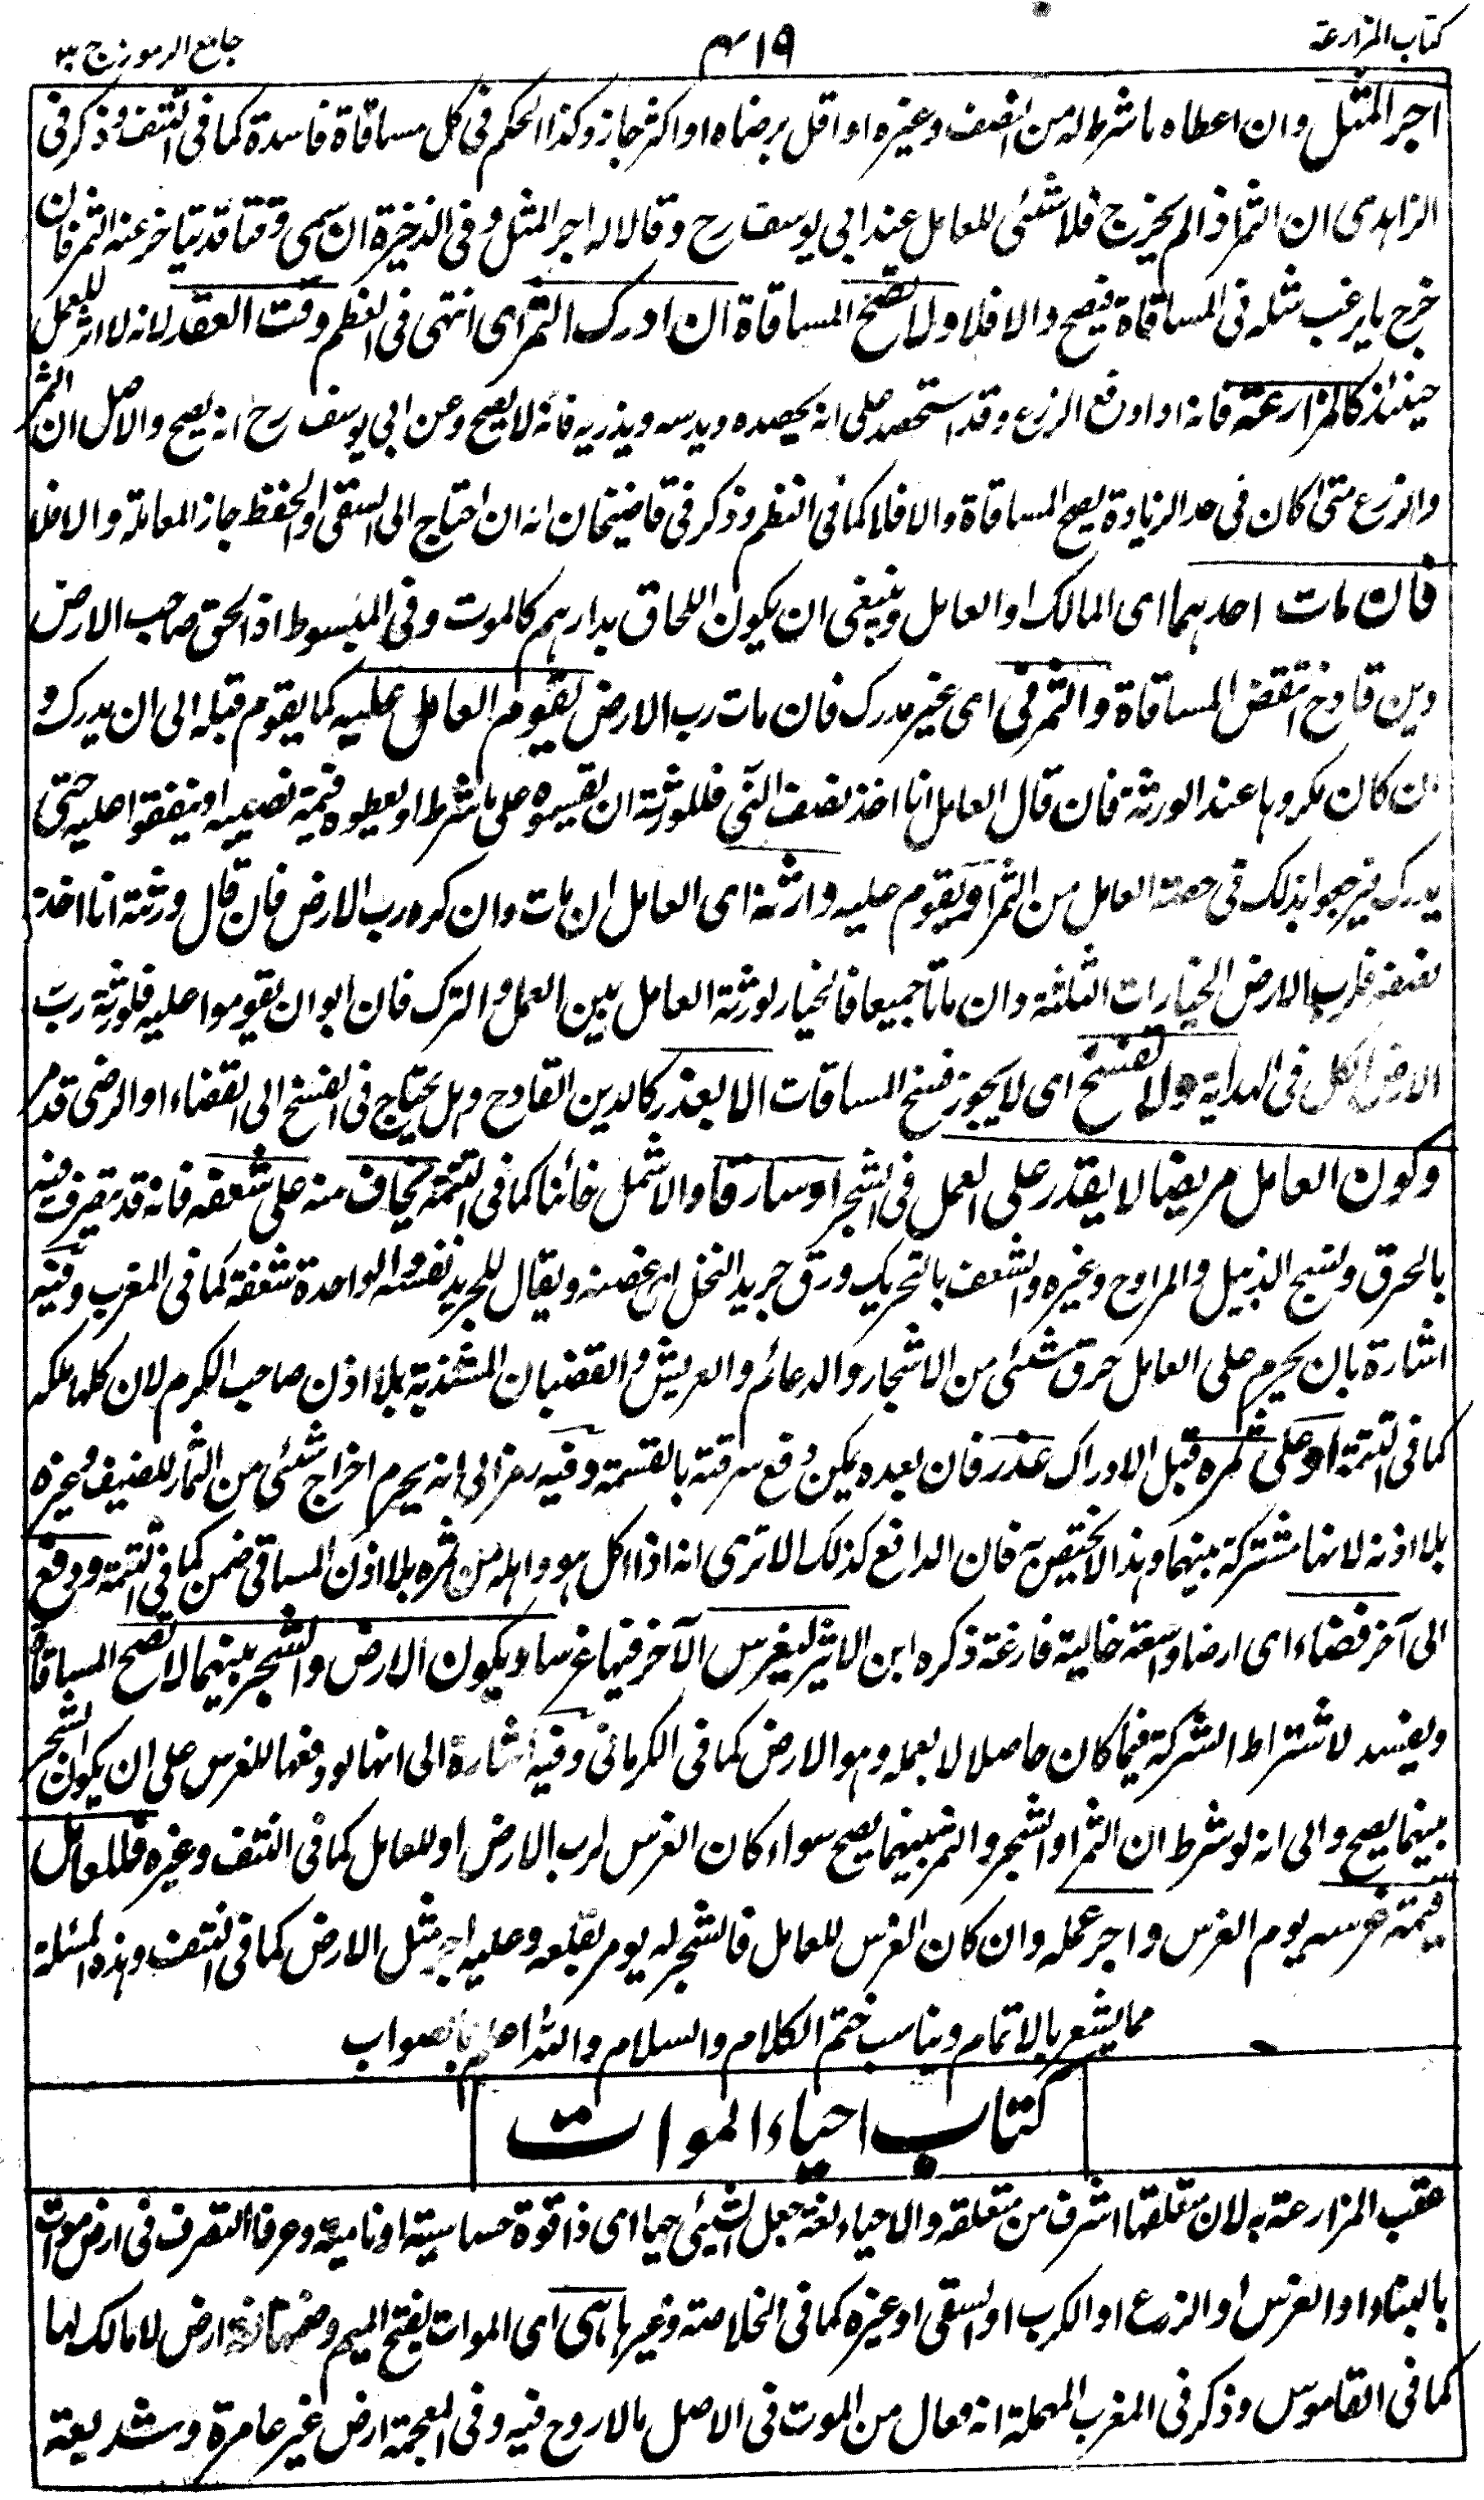 كتاب المزارعة
٤١٩
جامع الرموز ج ٣
اجر المثل وان اعطاه ما شرط له من النصف وغيره او اقل برضاه او اكثر جاز وكذا الحكم فى كل مساقاة فاسدة كما فى النتف وذكر فى
الزاهدى ان الثمر اذا لم يخرج فلا شئى للعامل عند ابى يوسف رح وقالا له اجر المثل وفى الذخيرة ان سمى وقتا قد يتاخر عنه الثمر فان
خرج ما يرغب مثله فى المساقاة فيصح والا فلا ولا تصح المساقاة ان ادرك الثمر اى انتهى فى العظم وقت العقد لانه لا اثر للعمل
حينئذ كالمزارعة فانه اذا دفع الزرع وقد استحصد على انه يحصده ويدسه ويذريه فانه لا يصح وعن ابى يوسف رح انه يصح والاصل ان الثمر
والزرع متى كان فى حد الزيادة يصح المساقاة والا فلا كما فى النظم وذكر فى قاضيخان انه ان احتاج الى السقى او الحفظ جاز المعاملة والا فلا
فان مات احدهما اى المالك او العامل وينبغى ان يكون اللحاق بدارهم كالموت وفى المبسوط اذا لحق صاحب الارض
دين قادح انتقض المساقاة والثمر نى اى غير مدرك فان مات رب الارض يقوم العامل عليه كما يقوم قبله الى ان يدرك و
ان كان مكروها عند الورثة فان قال العامل انا اخذ نصف النى فللورثة ان يقسموه على ما شرط او يعطوه قيمة نصيبه او ينفقوا عليه حتى
يدرك فيرجعوا بذلك فى حصة العامل من الثمر او يقوم عليه وارثه اى العامل ان مات وان كره رب الارض فان قال ورثته انا اخذ
نصفه فلرب الارض الخيارات الثلثة وان ماتا جميعا فالخيار لورثة العامل بين العمل والترك فان ابوا ان يقوموا عليه فلورثة رب
الارض الكل فى الهداية ولا تفسخ اى لا يجوز فسخ المساقات الا بعذر كالدين القادح وهل يحتاج فى الفسخ الى القضاء او الرضى قد مر
وكون العامل مريضا لا يقدر على العمل فى الشجر او سارقا والاشمل خائنا كما فى التتمة يخاف منه على شعفه فانه قد يتصرف فيه
بالحرق ونسج الزبيل والمراوح وغيره والشعف بالتحريك ورق جريد النخل اى غصنه ويقال للجريد نفسه الواحدة شعفة كما فى المغرب وفيه
اشارة بان يحرم على العامل حرق شئى من الاشجار والدعائم والعريش والقضبان المشذبة بلا اذن صاحب الكرم لان كلها ملكه
كما فى التتمة او على ثمره قبل الادراك عذر فان بعده يمكن دفع سرقته بالقسمة وفيه رمز الى انه يحرم اخراج شئى من الثمار للضيف وغيره
بلا اذنه لانها مشتركة بينهما وهذا لا يختص به فان الدافع كذلك الا ترى انه اذا اكل هو واهله من ثمره بلا اذن المساقى ضمن كما فى التتمة ودفع
الى آخر فضاء اى ارضا واسعة خالية فارغة ذكره ابن الاثير ليغرس الآخر فيها غرسا ويكون الارض والشجر بينهما لا تصح المساقاة
ويفسد لاشتراط الشركة فيما كان حاصلا لا بعمله وهو الارض كما فى الكرمانى وفيه اشارة الى انها لو دفعها للغرس على ان يكون الشجر
بينهما يصح والى انه لو شرط ان الثمر او الشجر والثمر بينهما يصح سواء كان الغرس لرب الارض او للعامل كما فى النتف وغيره فللعامل
قيمة غرسه يوم الغرس واجر عمله وان كان الغرس للعامل فالشجر له يومر بقلعه وعليه اجر مثل الارض كما فى النتف وهذه المسئلة
مما يشعر بالاتمام ويناسب ختم الكلام والسلام والله اعلم بالصواب
كتاب احياء الموات
عقب المزارعة به لان متعلقها اشرف من متعلقه والاحياء لغة جعل الشئى حيا اى ذا قوة حساسية او نامية وعرفا التصرف فى ارض موات
بالبناء او الغرس او الزرع او الكرب او السقى او غيره كما فى الخلاصة وغيرها هى اى الموات بفتح الميم وضمها لغة ارض لا مالك لها
كما فى القاموس وذكر فى المغرب المهملة انه فعال من الموت فى الاصل ما لا روح فيه وفى المعجمة ارض غير عامرة وشريعة